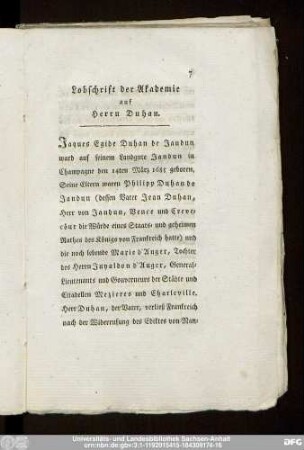 7
Lobschrift der Akademie
auf
Herrn Duhan.
Jaques Egide Duhan de Jandun
ward auf seinem Landgute Jandun in
Champagne den 14ten März 1685 geboren.
Seine Eltern waren Philipp Duhan de
Jandun (dessen Vater Jean Duhan,
Herr von Jandun, Vence und Creve-
cöur die Würde eines Staats- und geheimen
Rathes des Königs von Frankreich hatte) und
die noch lebende Marie d'Auger, Tochter
des Herrn d'Auger, General-
Lieutenants und Gouverneurs der Städte und
Citadellen Mezieres und Charleville.
Herr Duhan, der Vater, verließ Frankreich
nach der Widerrufung des Ediktes von Nan-
Universitäts- und Landesbibliothek Sachsen-Anhalt
urn:nbn:de:gbv:3:1-1192015415-184309174-16
DFG